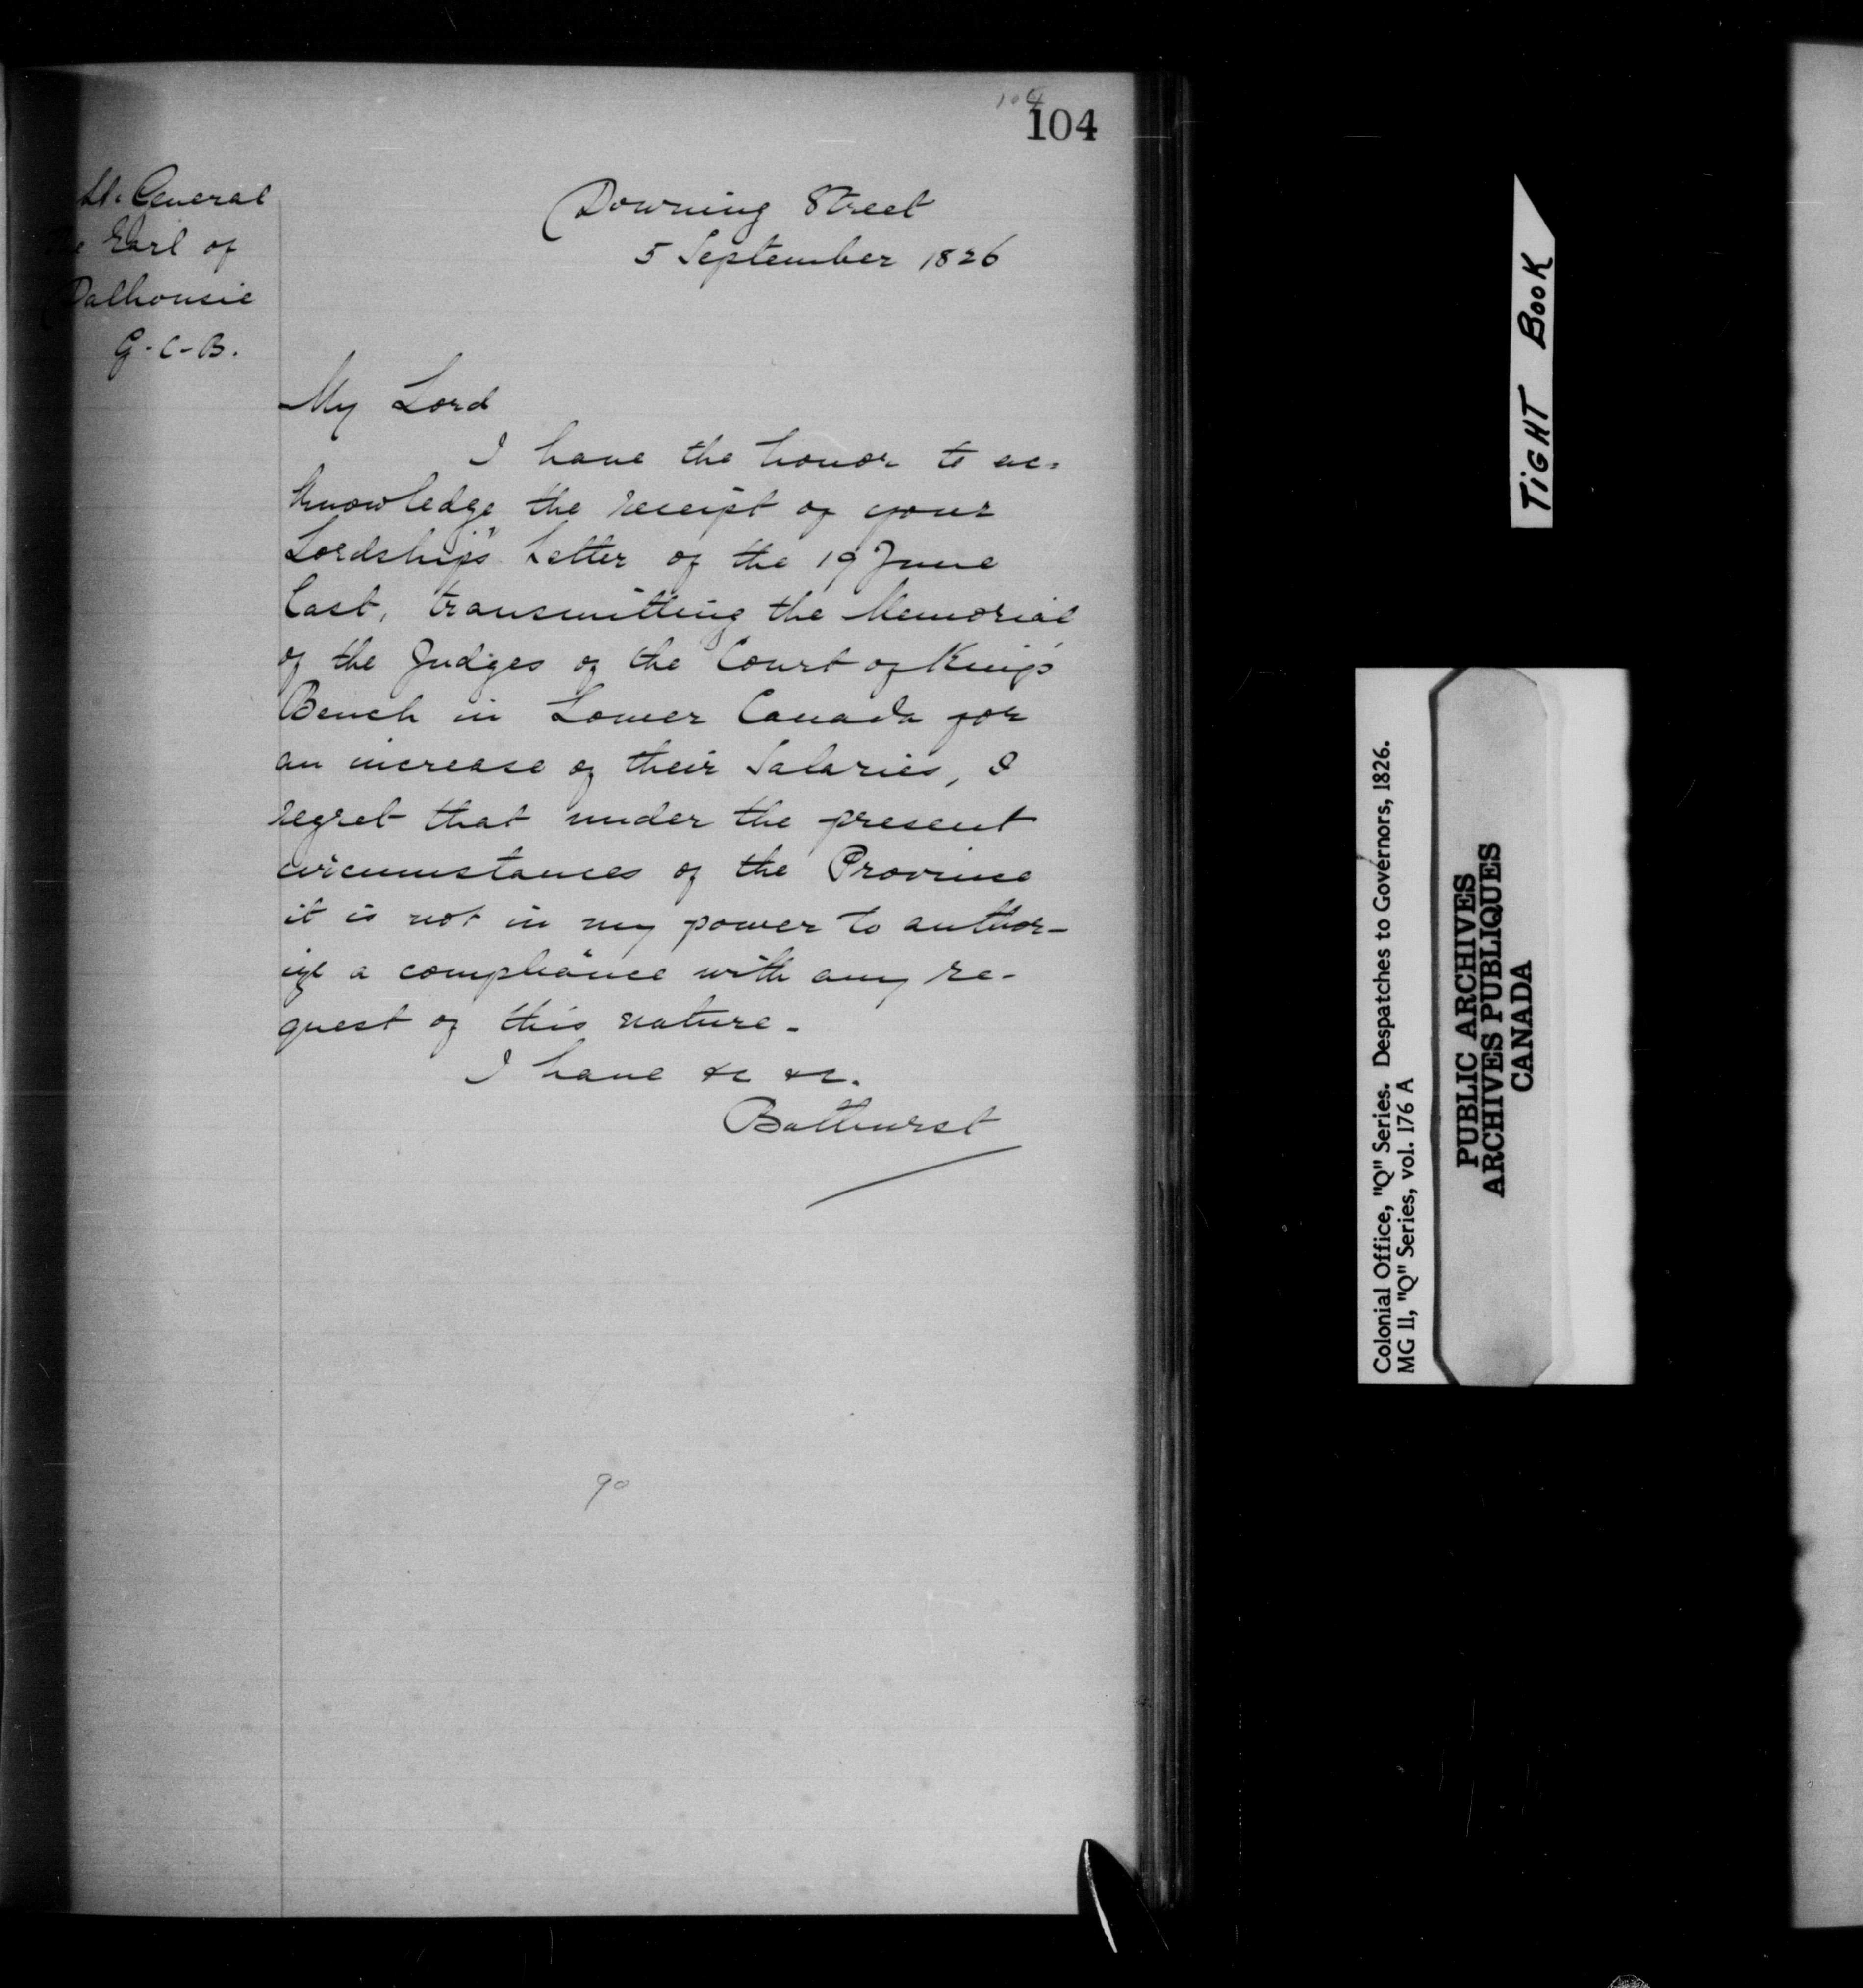 104
104
Lt. General
The Earl of
Dalhousie
G-C-B.
Downing Street
5 September 1826
My Lord
I have the honor to ac-
knowledge the receipt of your
Lordship's Letter of the 19 June
last, transmitting the Memorial
of the Judges of the Court of King's
Bench in Lower Canada for
an increase of their Salaries, I
regret that under the present
circumstances of the Province
it is not in my power to author-
ize a compliance with any re-
quest of this nature.
I have &c &c.
Bathurst
90
TIGHT BOOK
Colonial Office, "Q" Series. Despatches to Governors, 1826.
MG 11, "Q" Series, vol. 176 A
PUBLIC ARCHIVES
ARCHIVES PUBLIQUES
CANADA